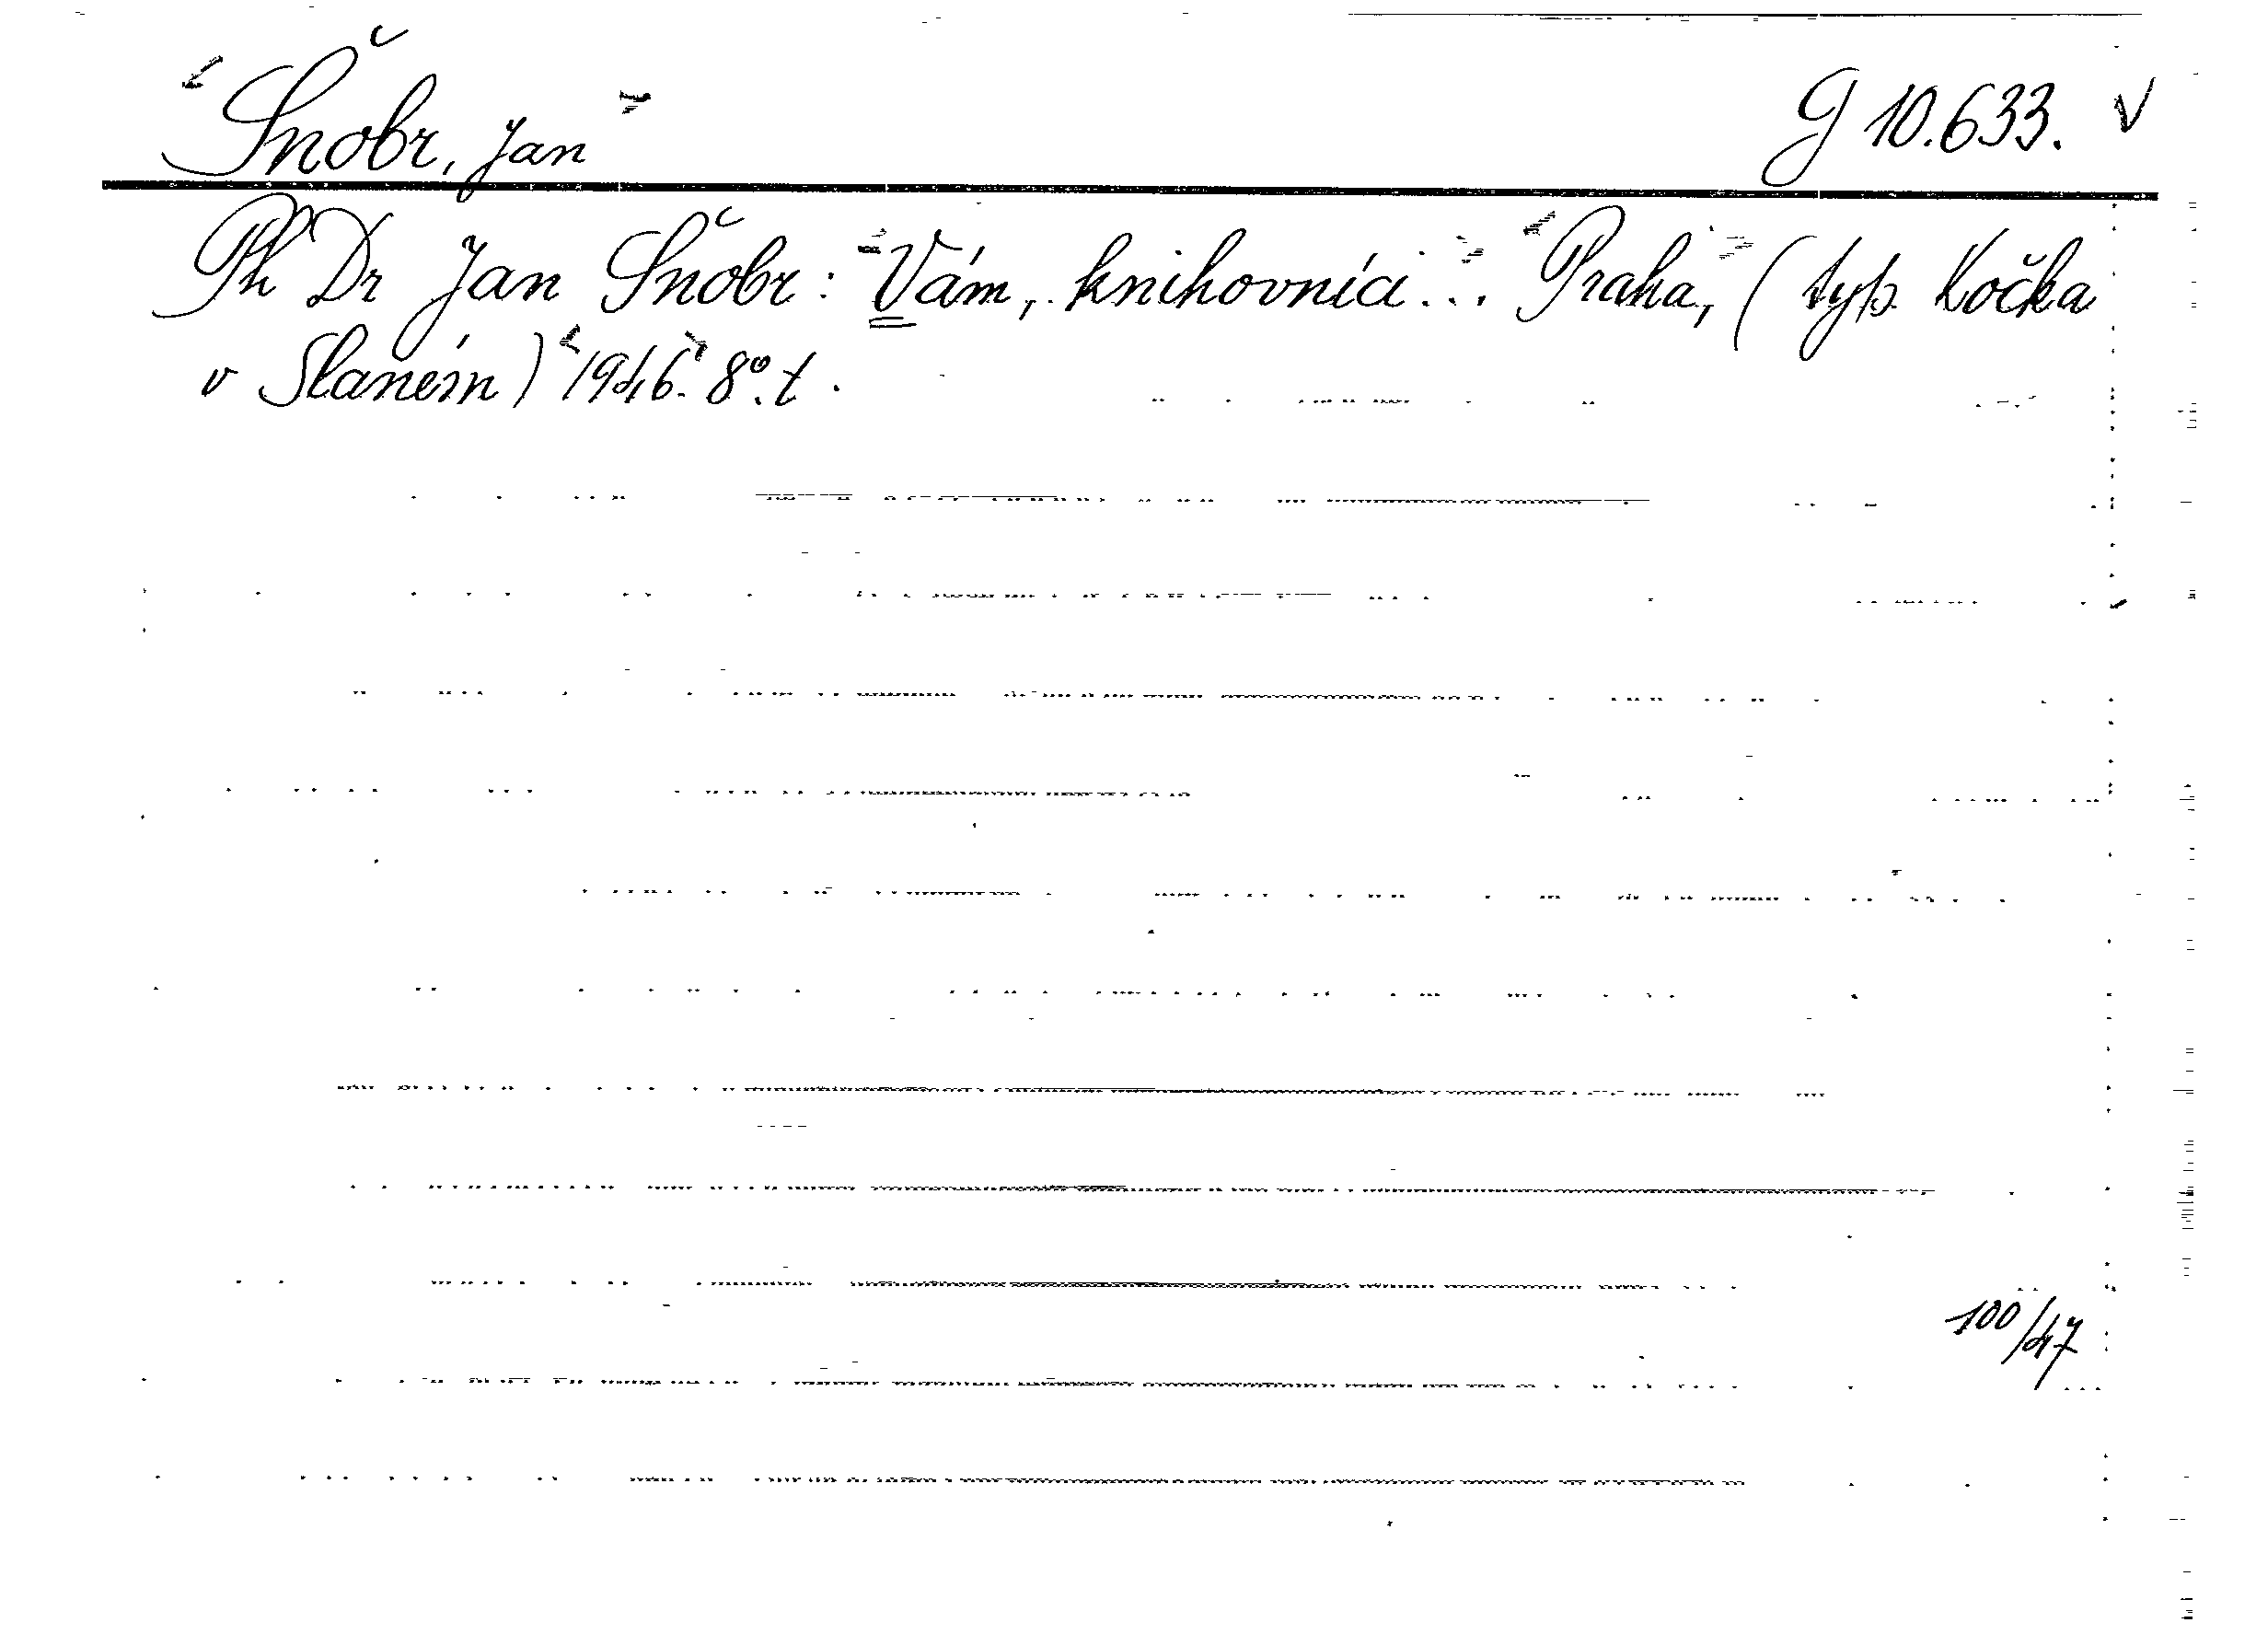 Šnobr, Jan G 10.633. V
Ph Dr Jan Šnobr: Vám, knihovníci... Praha, (typ. Kočka
v Slaném) 1946. 8°. t.
100/47